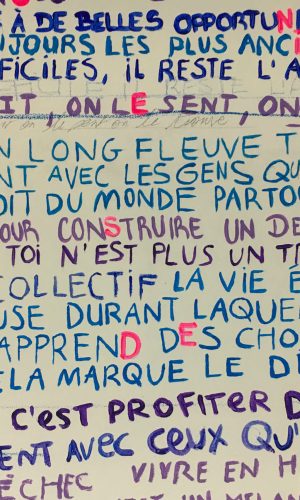 E À DE BELLES OPPORTUN
UJOURS LES PLUS ANCI
FFICILES, IL RESTE L'A
IT, ON LE SENT, ON
N LONG FLEUVE T
NT AVEC LES GENS QU
OIT DU MONDE PARTO
OUR CONSTRUIRE UN DE
TOI N'EST PLUS UN T
COLLECTIF LA VIE É
USE DURANT LAQUE
APPREND DES CHO
ELA MARQUE LE D
C'EST PROFITER D
ENT AVEC CEUX QU'
ÉCHEC VIVRE EN H